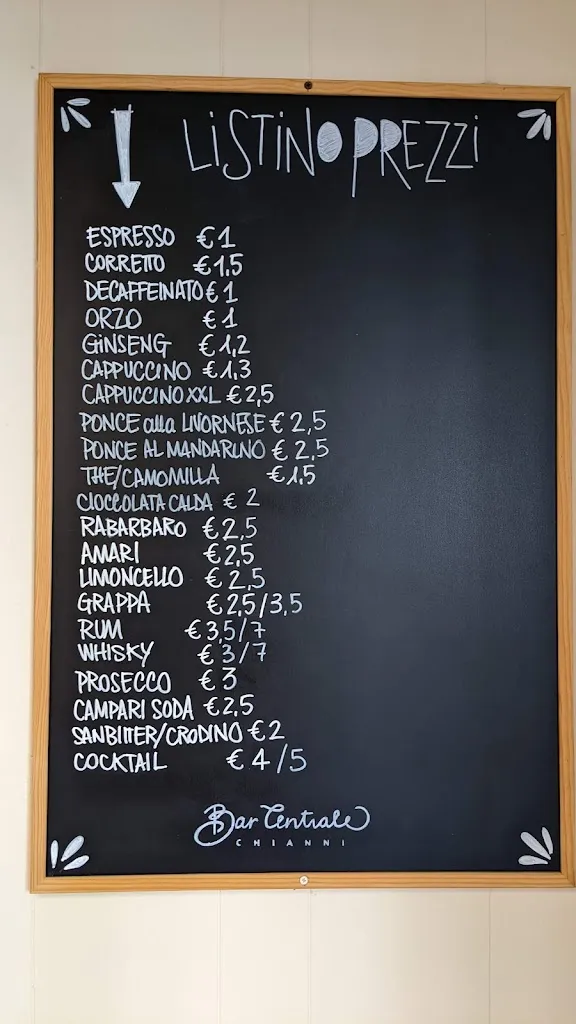 LISTINO PREZZI
ESPRESSO €1
CORRETTO €1.5
DECAFFEINATO €1
ORZO €1
GINSENG €1,2
CAPPUCCINO €1,3
CAPPUCCINO XXL €2,5
PONCE alla LIVORNESE €2,5
PONCE AL MANDARINO €2,5
THE/CAMOMILLA €1.5
CIOCCOLATA CALDA €2
RABARBARO €2,5
AMARI €2,5
LIMONCELLO €2,5
GRAPPA €2,5/3,5
RUM €3,5/7
WHISKY €3/7
PROSECCO €3
CAMPARI SODA €2,5
SANBITTER/CRODINO €2
COCKTAIL €4/5
Bar Centrale
CHIANNI